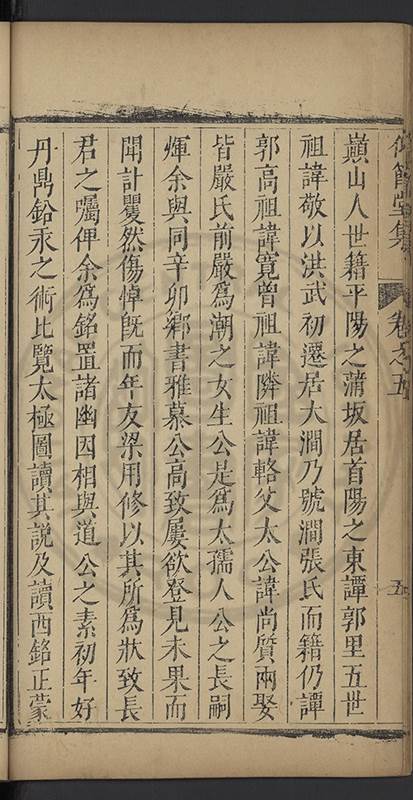 仰節堂集
卷之五
五
巔山人世籍平陽之蒲坂居首陽之東譚郭里五世
祖諱敬以洪武初遷居大澗乃號澗張氏而籍仍譚
郭高祖諱寬曾祖諱隣祖諱輅父太公諱尚質兩娶
皆嚴氏前嚴爲潮之女生公是爲太孺人公之長嗣
煇余與同辛卯鄉書雅慕公高致屢欲登見未果而
聞訃矍然傷悼旣而年友梁用修以其所爲狀致長
君之囑俾余爲銘置諸幽因相與道公之素初年好
丹鼎鉛汞之術比覽太極圖讀其說及讀西銘正蒙